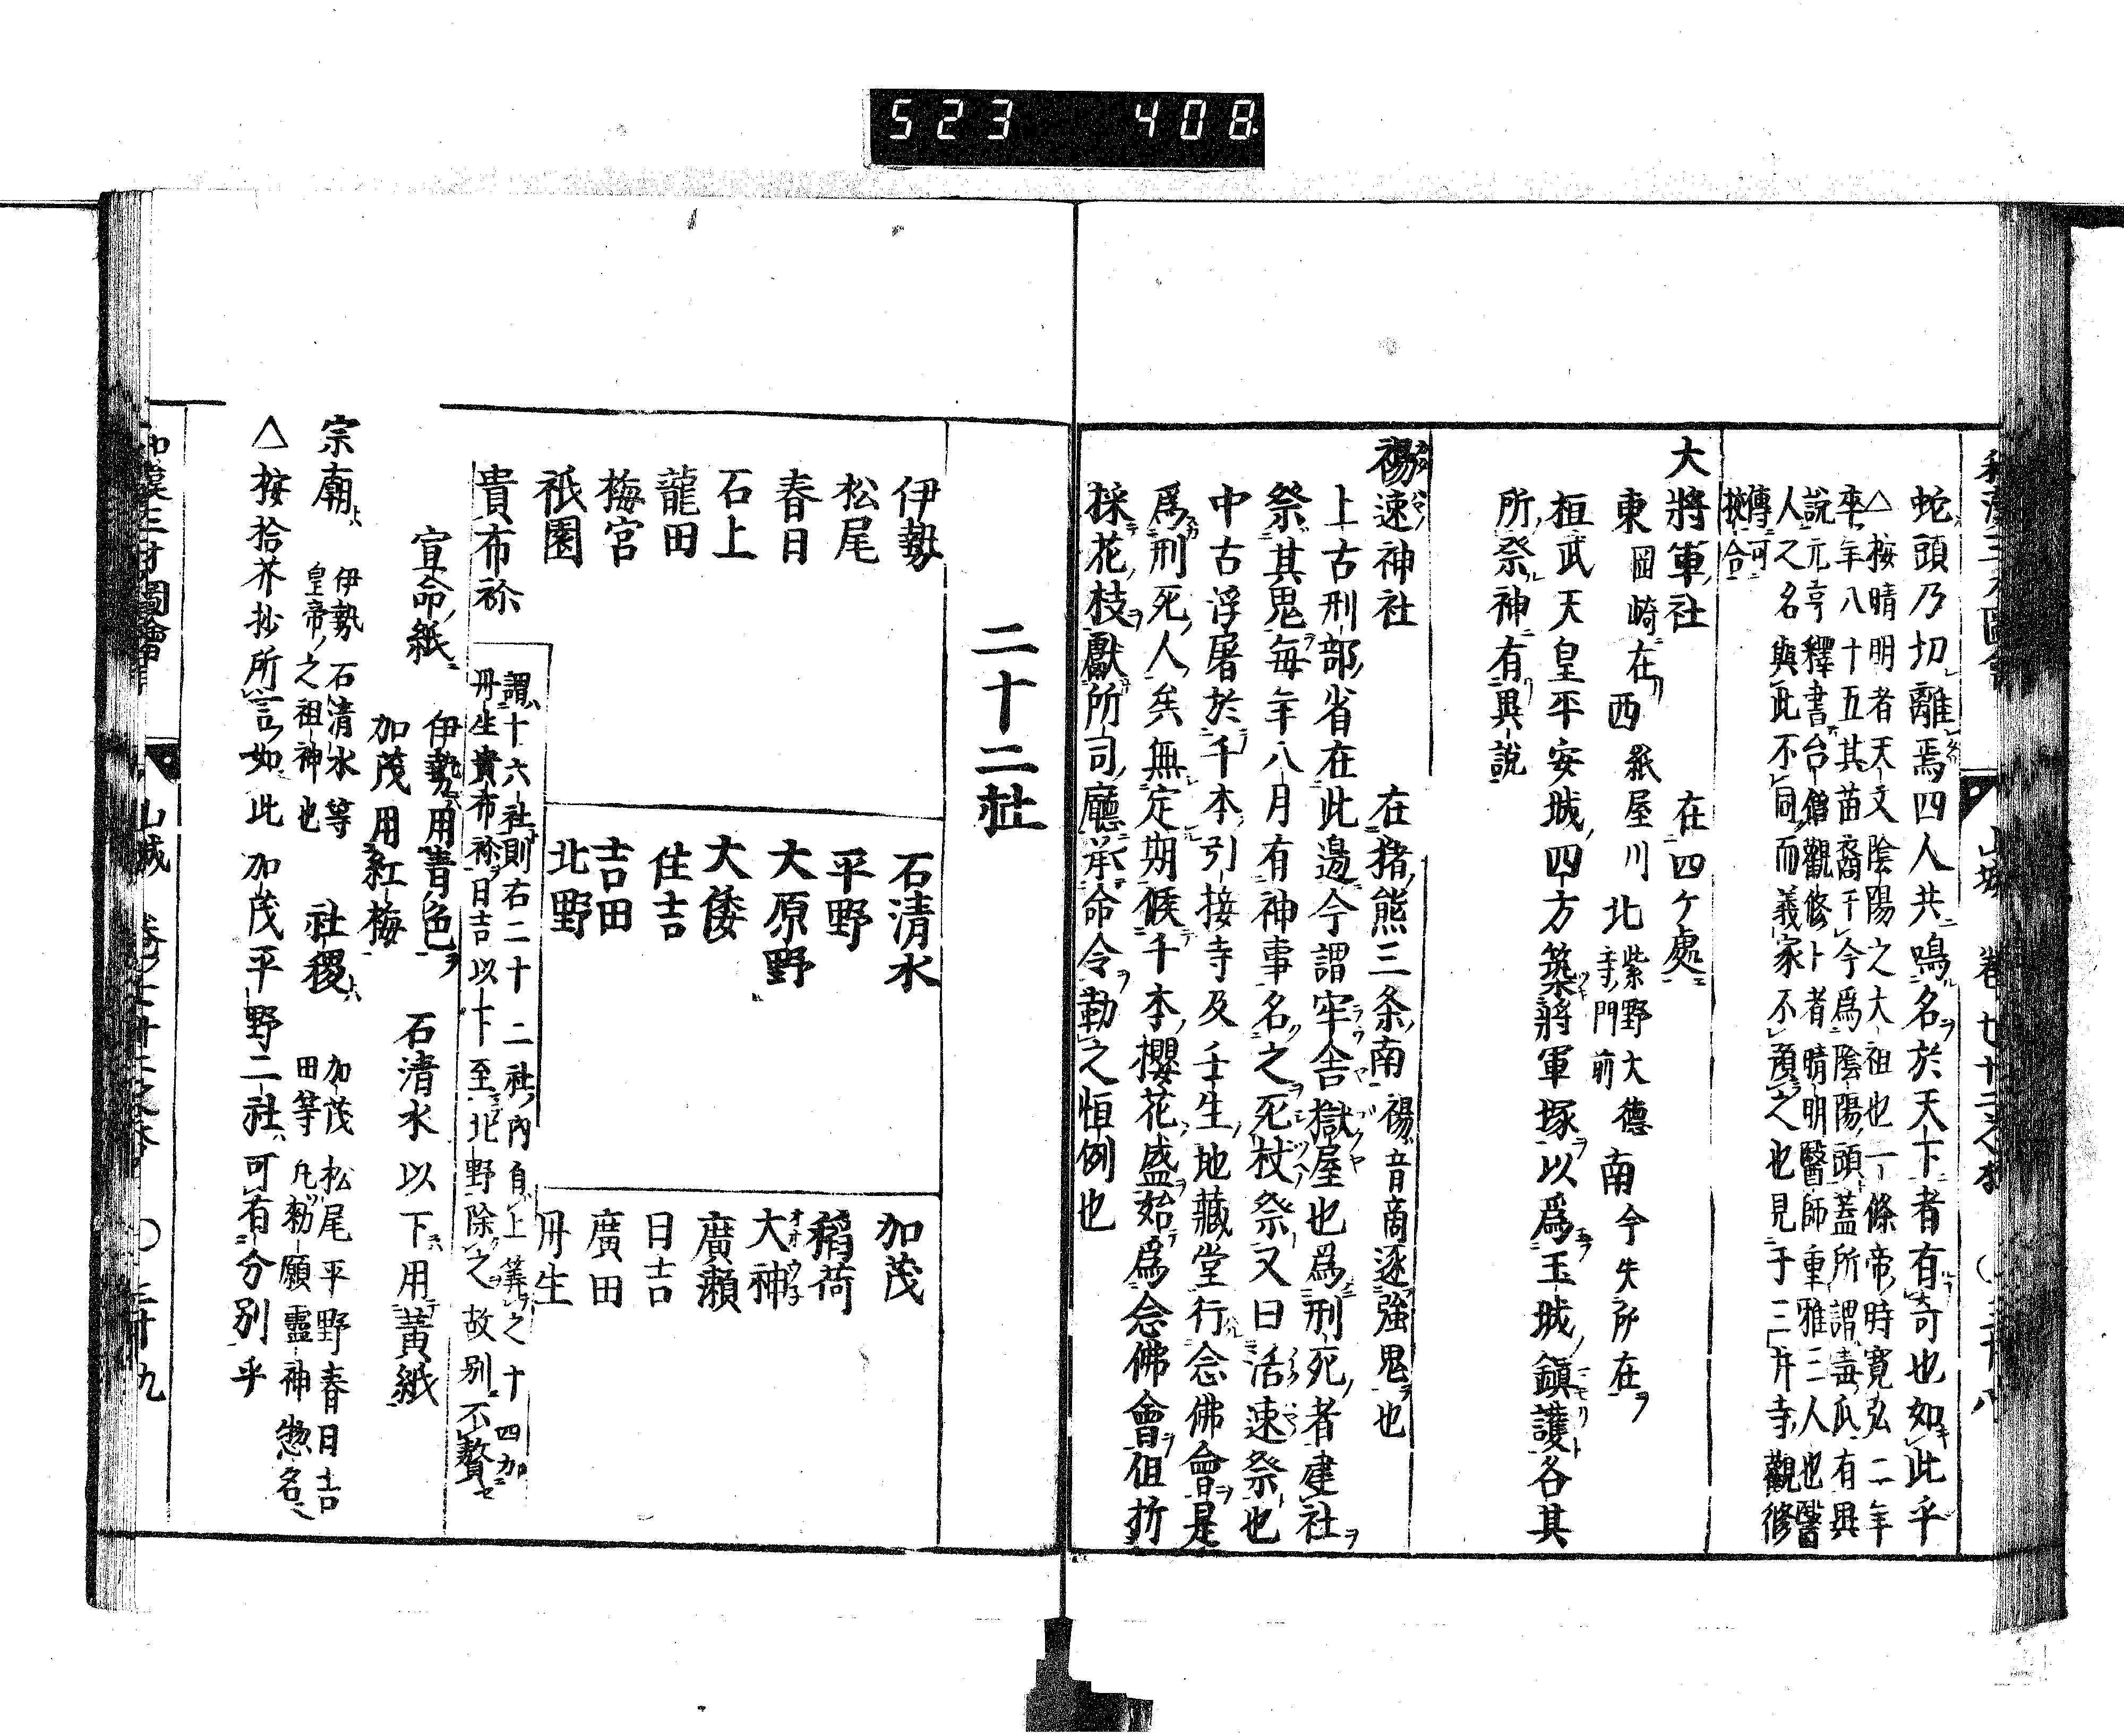 523 408
蛇頭乃切離焉四人共鳴名於天下者有奇也如此乎
△按晴明者天文陰陽之大祖也一條帝時寛弘二年
卒年八十五其苗裔于今爲陰陽頭蓋所謂毒瓜有異
説元亨釋書台僧觀修卜者晴明醫師重雅三人也醫
人之名與此不同而義家不預之也見于三井寺觀修
傳可
挍合
大將軍社 在四ケ處
東岡崎在西紙屋川北紫野大德寺門前南今失所在
桓武天皇平安城四方築將軍塚以爲玉城鎮護各其
所祭神有異説
禓速神社 在猪熊三条南 禓音商逐強鬼也
上古刑部省在此邊今謂牢舎獄屋也爲刑死者建社
祭其鬼毎年八月有神事名之死杖祭又曰活速祭也
中古浮屠於千本引接寺及壬生地藏堂行念佛會是
爲刑死人矣無定期候千本櫻花盛始爲念佛會但折
採花枝獻所司廳承命令勒之恒例也
二十二社
伊勢 石清水 加茂
松尾 平野 稻荷
春日 大原野 大神
石上 大倭 廣瀬
龍田 住吉 日吉
梅宮 吉田 廣田
祇園 北野 丹生
貴布祢
謂十六社則右二十二社内自上筭之十四加
丹生貴布祢日吉以下至北野除之故別不贅
宣命紙 伊勢用青色 石清水以下用黄紙
加茂用紅梅
宗廟 伊勢石清水等
皇帝之祖神也
社稷 加茂松尾平野春日吉
田等凡勅願靈神惣名
△按拾芥抄所言如此加茂平野二社可有分別乎
山城